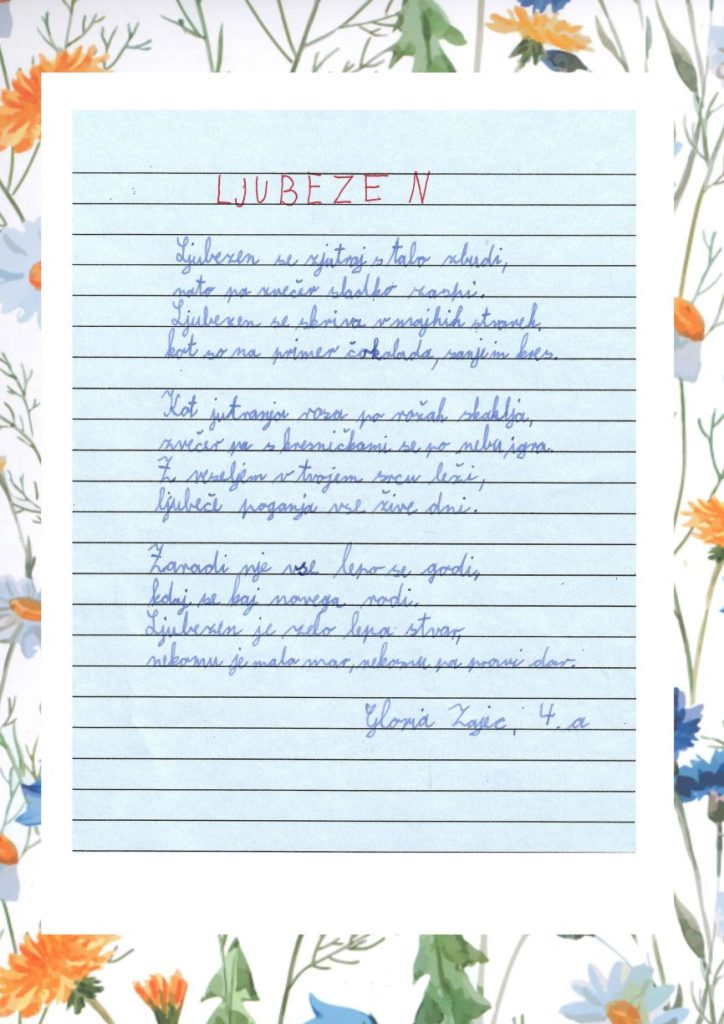 LJUBEZEN
Ljubezen se zjutraj s talo zbudi,
nato pa zvečer sladko zaspi.
Ljubezen se skriva v majhih stvareh,
kot so na primer čokolada, sanje in kres.
Kot jutranja rosa po rožah skaklja,
zvečer pa s kresničkami se po nebu igra.
Z veseljem v tvojem srcu leži,
ljubeče poganja vse žive dni.
Zaradi nje vse lepo se godi,
kdaj se kaj novega rodi.
Ljubezen je zelo lepa stvar,
nekomu je mala mar, nekomu pa pravi dar.
Gloria Zajec, 4. a